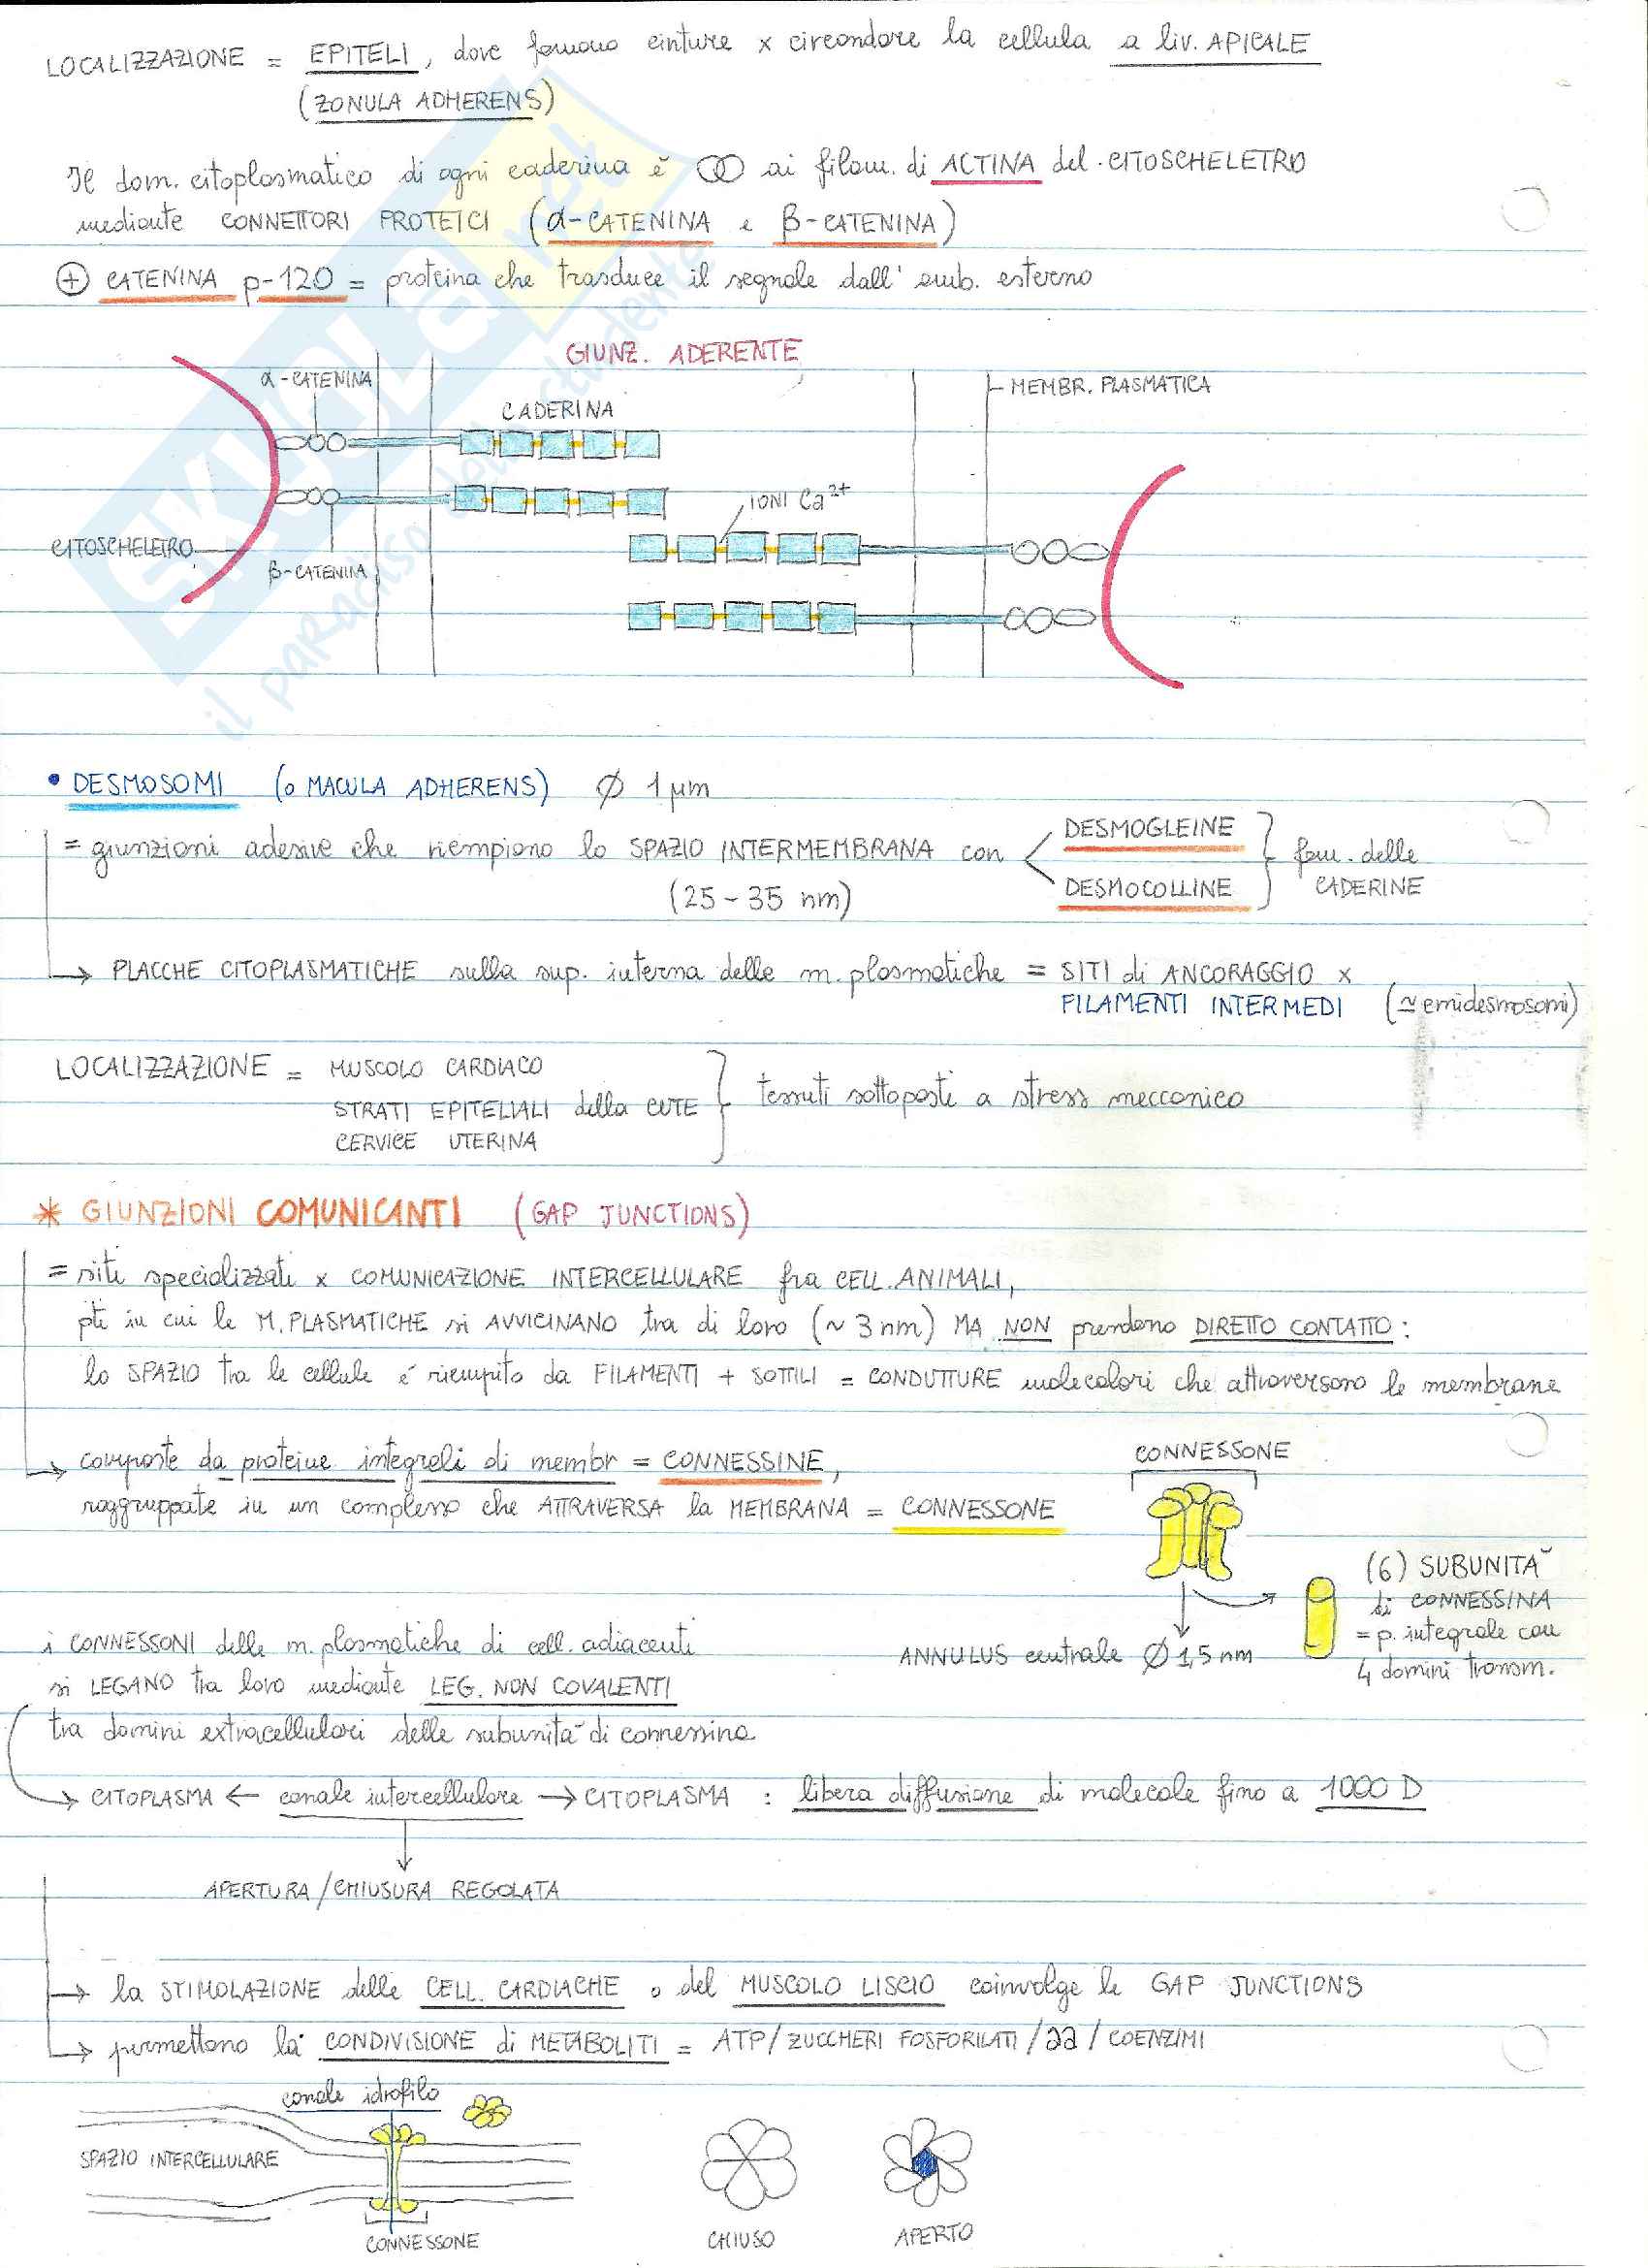 LOCALIZZAZIONE = EPITELI, dove formano cinture x circondare la cellula a liv. APICALE
(ZONULA ADHERENS)
Il dom. citoplasmatico di ogni caderina è ai filam. di ACTINA del CITOSCHELETRO
mediante CONNETTORI PROTEICI (α-CATENINA e β-CATENINA)
⊕ CATENINA p-120 = proteina che trasduce il segnale dall' amb. esterno
GIUNZ. ADERENTE
α-CATENINA
MEMBR. PLASMATICA
CADERINA
IONI Ca²⁺
CITOSCHELETRO
β-CATENINA
• DESMOSOMI (o MACULA ADHERENS) Ø 1 μm
= giunzioni adesive che riempiono lo SPAZIO INTERMEMBRANA con DESMOGLEINE fam. delle
(25-35 nm) DESMOCOLLINE CADERINE
→ PLACCHE CITOPLASMATICHE sulla sup. interna delle m. plasmatiche = SITI di ANCORAGGIO x
FILAMENTI INTERMEDI (≃ emidesmosomi)
LOCALIZZAZIONE = MUSCOLO CARDIACO
STRATI EPITELIALI della CUTE } tessuti sottoposti a stress meccanico
CERVICE UTERINA
* GIUNZIONI COMUNICANTI (GAP JUNCTIONS)
= siti specializzati x COMUNICAZIONE INTERCELLULARE fra CELL. ANIMALI,
pti in cui le M. PLASMATICHE si AVVICINANO tra di loro (~ 3 nm) MA NON prendono DIRETTO CONTATTO:
lo SPAZIO tra le cellule é riempito da FILAMENTI + SOTTILI = CONDUTTURE molecolari che attraversano le membrane
→ composte da proteine integrali di membr = CONNESSINE,
raggruppate in un complesso che ATTRAVERSA la MEMBRANA = CONNESSONE
CONNESSONE
(6) SUBUNITA'
di CONNESSINA
= p. integrale con
4 domini transm.
ANNULUS centrale Ø 1,5 nm
i CONNESSONI delle m. plasmatiche di cell. adiacenti
si LEGANO tra loro mediante LEG. NON COVALENTI
tra domini extracellulari delle subunità di connessina
→ CITOPLASMA ← canale intercellulare → CITOPLASMA : libera diffusione di molecole fino a 1000 D
APERTURA/CHIUSURA REGOLATA
→ la STIMOLAZIONE delle CELL. CARDIACHE o del MUSCOLO LISCIO coinvolge le GAP JUNCTIONS
→ permettono la CONDIVISIONE di METABOLITI = ATP/ZUCCHERI FOSFORILATI/aa/COENZIMI
canale idrofilo
SPAZIO INTERCELLULARE
CONNESSONE
CHIUSO
APERTO
SKUOLA.net
il paradiso dello studente